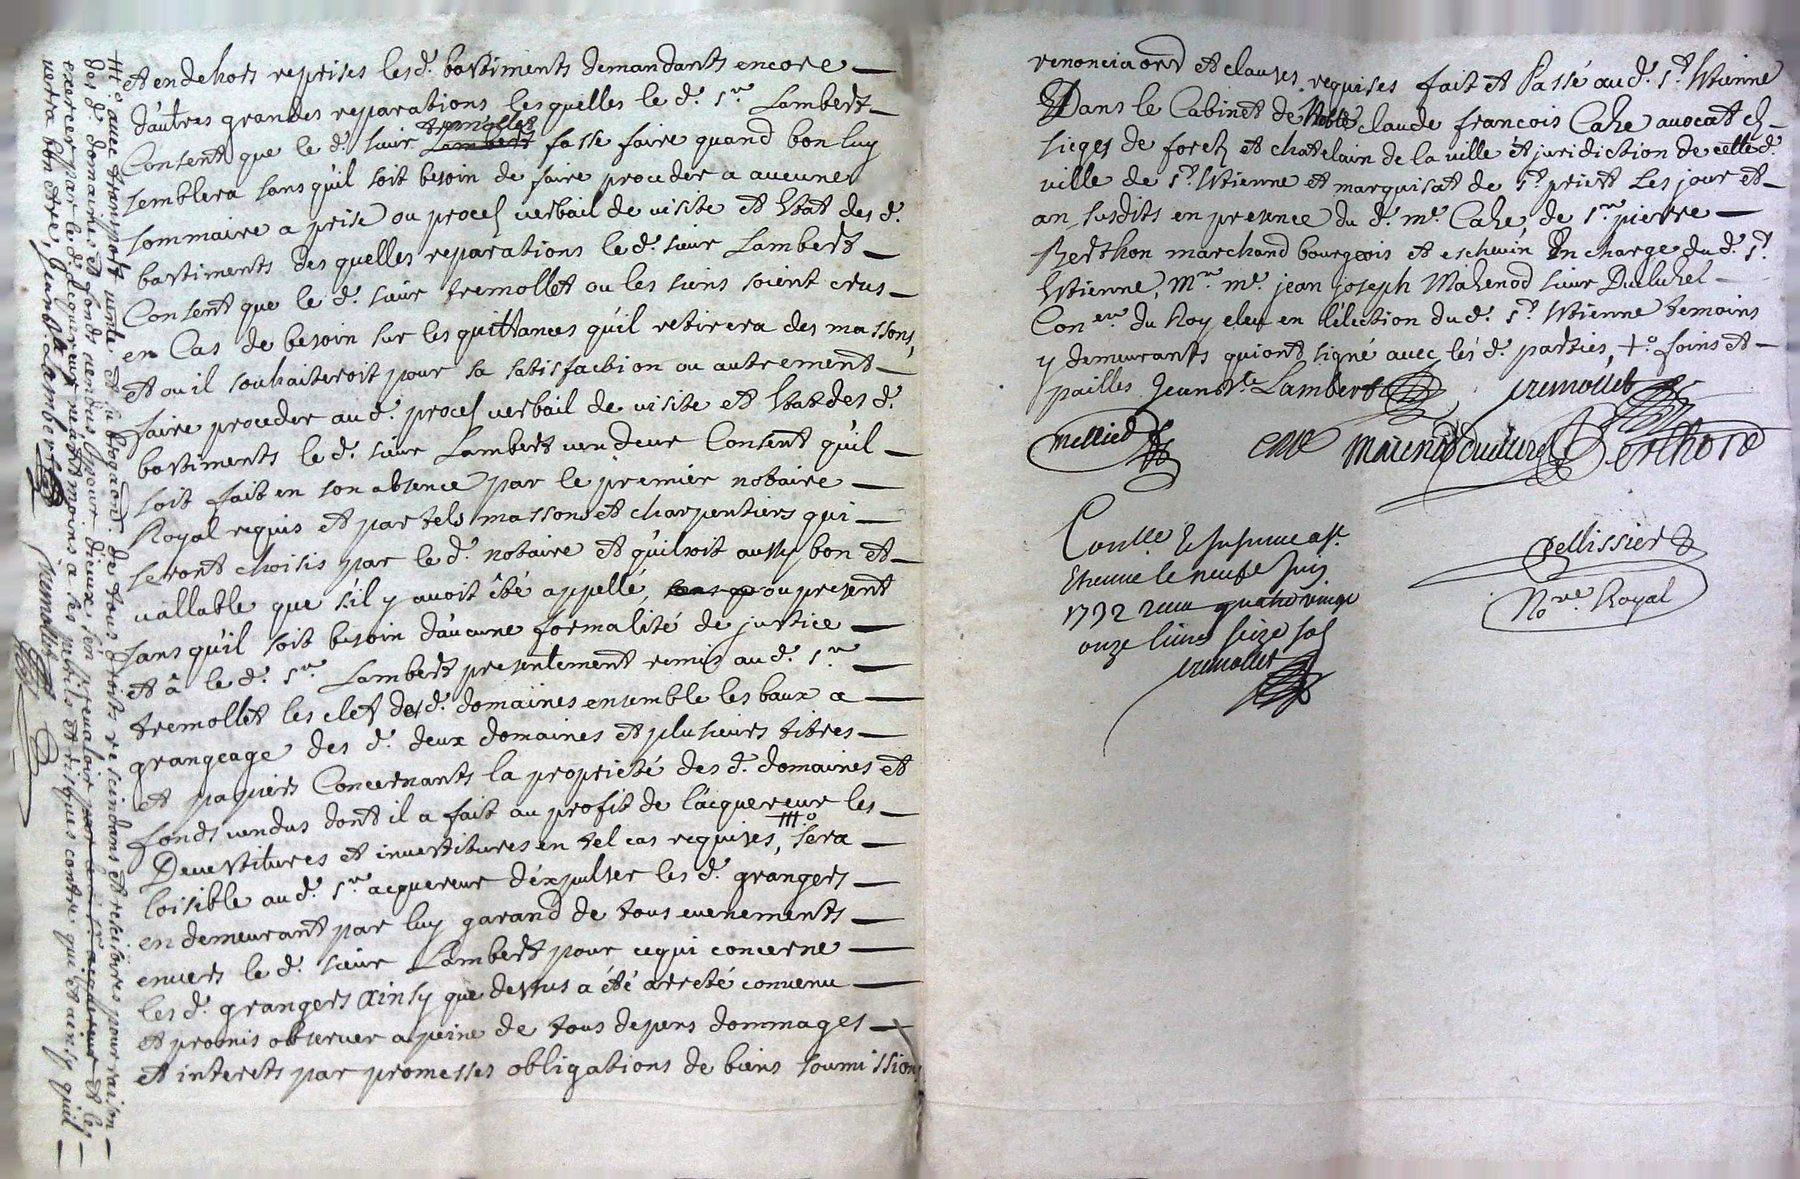 et en dehors reprises lesd. bastiments demandants encore
d'autres grandes reparations lesquelles le d. Sr. Lambert
tremollet
Consent que le d. sieur Lambert fasse faire quand bon luy
semblera sans qu'il soit besoin de faire proceder a aucune
sommaire a prise ou proces verbail de visite et Estat des d.
bastiments des quelles reparations le d. sieur Lambert
Consent que le d. sieur tremollet ou les siens soient crus
en Cas de besoin sur les quittances qu'il retirera des massons,
et ou il souhaiteroit pour sa satisfaction ou autrement
faire proceder au d. proces verbail de visite et Estat des d.
bastiments le d. sieur Lambert vendeur Consent qu'il
soit fait en son absence par le premier notaire
Royal requis et par tels massons et charpentiers qui
seront choisis par le d. notaire et qu'il soit aussy bon et
vallable que s'il y avoit êté appellé, ou present
sans qu'il soit besoin d'aucune formalité de justice
et â le d. Sr. Lambert presentement remis au d. Sr.
tremollet les clef des d. domaines ensemble les baux a
grangeage des d. deux domaines et plusieurs titres
et papiers Concernants la proprieté des d. domaines et
fonds vendus dont il a fait au profit de l'acquereur les
Devestitures et investitures en tel cas requises, ##o sera
loisible au d. Sr. acquereur d'expulser les d. grangers
en demeurant par luy garand de tous evenements
envers le d. sieur Lambert pour ce qui concerne
les d. grangers ainsy que dessus a été arreté convenu
et promis observer a peine de tous depens dommages
et interets par promesses obligations de biens soumissions
##o avec transport vente et subrogaon. de tous droits rescindans et rescisoires pour raison
des d. domaines et fonds vendus pour d'iceux s'en prevaloir par le d. sr. acquereur et les
exercer par le d. acquereur neantmoins a ses perils et risques contre qui et ainsy qu'il
verra bon etre, Jean Bte. Lambert tremollet
renonciaons et clauses requises fait et Passé au d. St. Etienne
Dans le Cabinet de Noble claude francois Cahe avocat es
sieges de forez et chatelain de la ville et juridiction de cette d.
ville de St. Etienne et marquisat de St. priest Les jour et
an susdits en presence du d. me. Cahe, de Sr. pierre
Berthon marchand bourgeois et eschevin En charge du d. St.
Etienne, Mr. me. jean joseph Mahenod sieur Duluhel
Coner. du Roy eleu en l'election du d. St. Etienne temoins
y demeurants qui ont signé avec les d. parties, +o foins et
pailles Jean Bte Lambert tremollet
Berthon
Conlle. Et
Etienne le neufe Juin
1732 receu quatre vingt
onze livres seize sols
tremollet
Pellissier
Nore. Royal